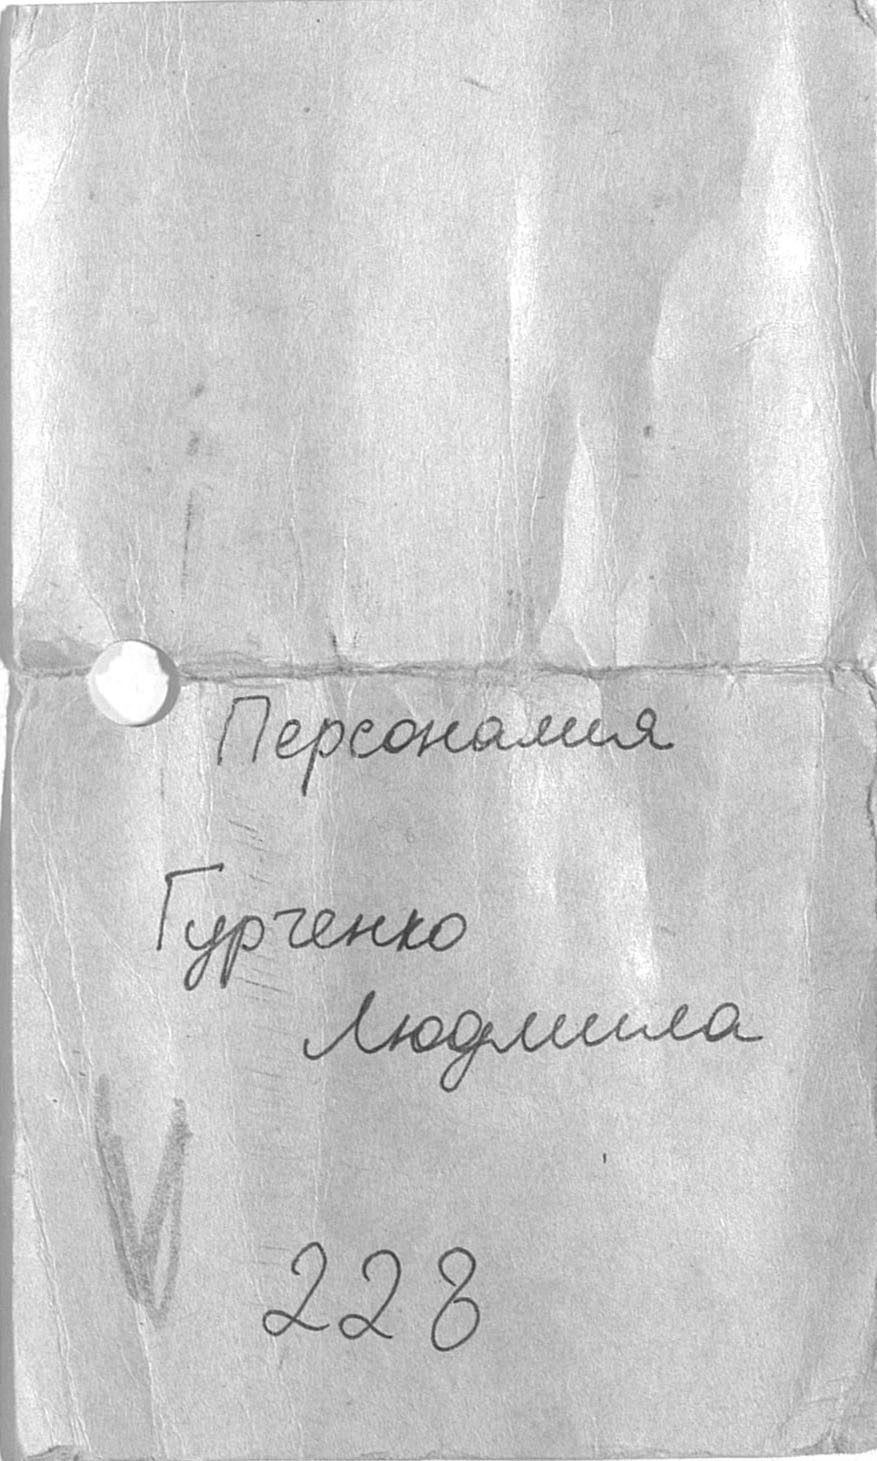 Персоналия
Гурченко
Людмила
228